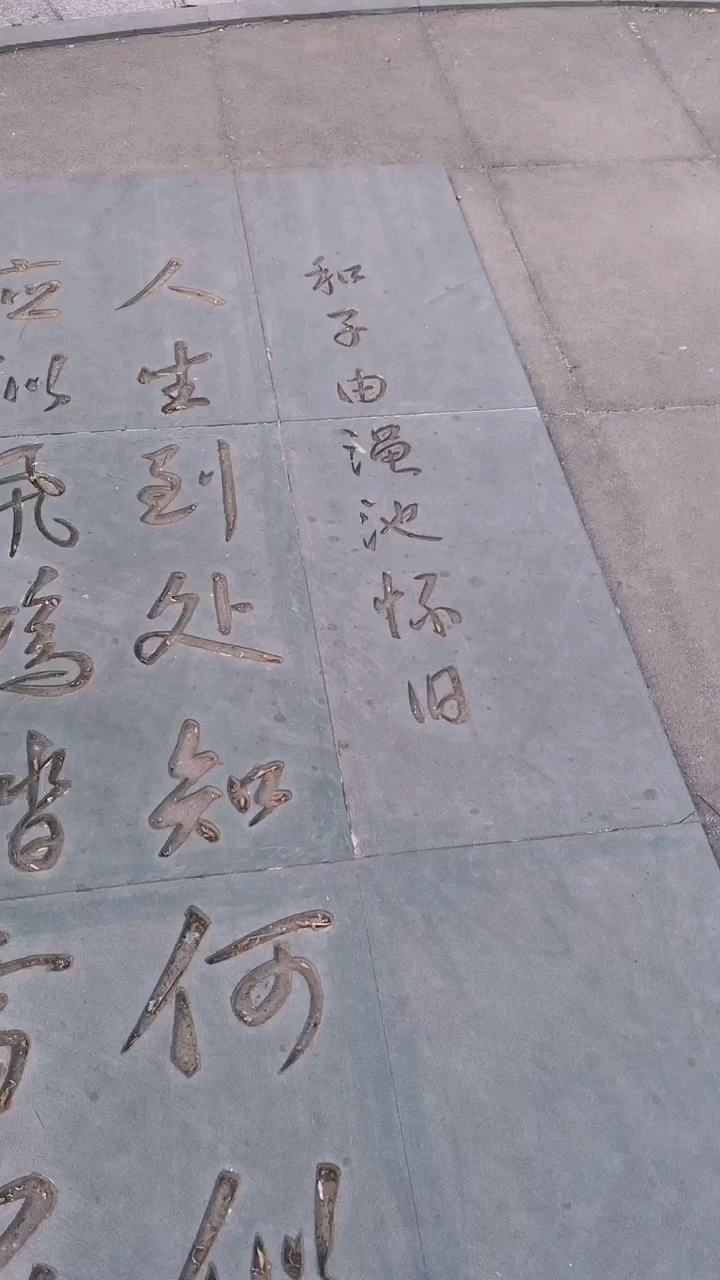 和子由渑池怀旧
人生到处知何似
应似飞鸿踏